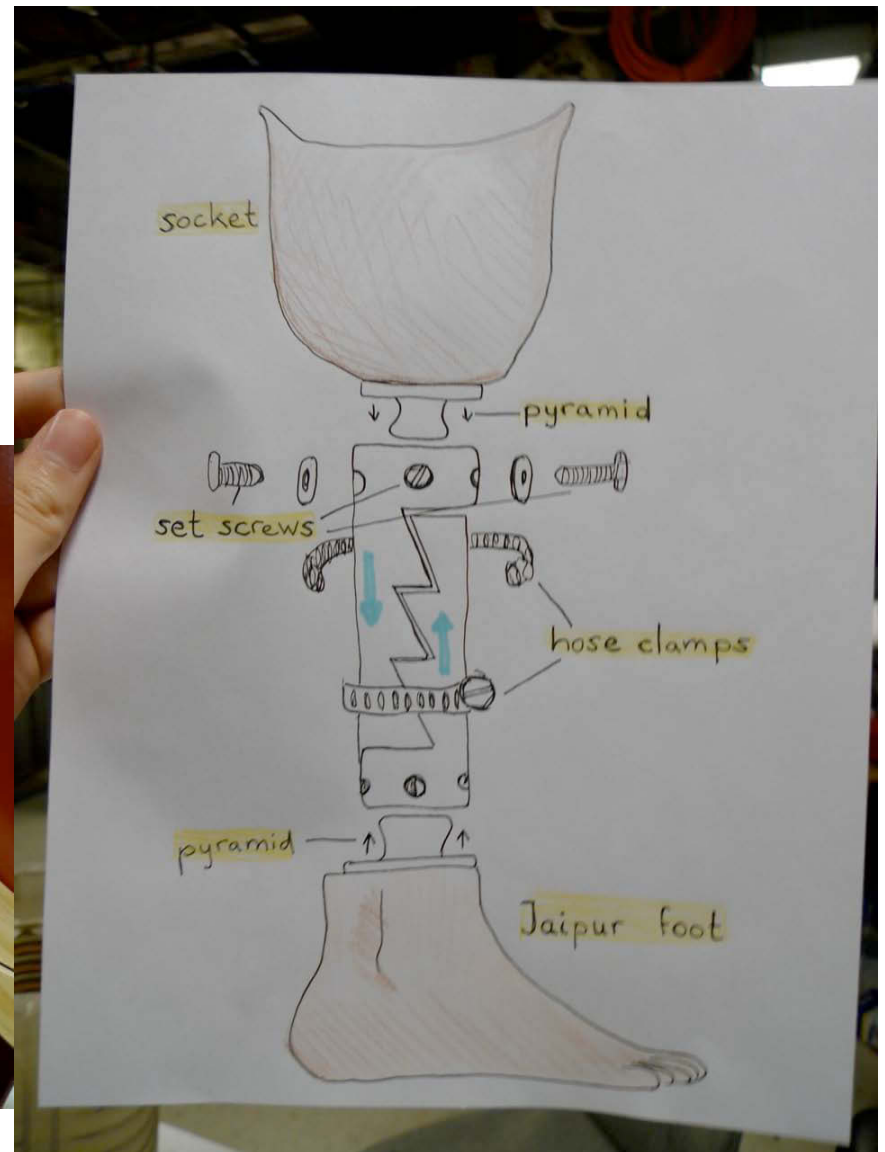 socket
pyramid
set screws
hose clamps
pyramid
Jaipur foot